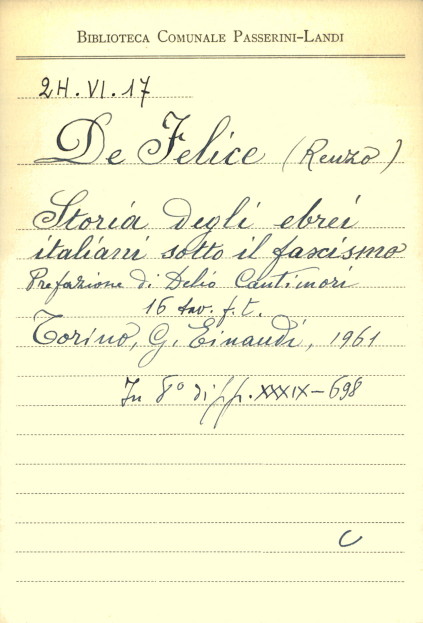 BIBLIOTECA COMUNALE PASSERINI-LANDI
2H.VI.17
De Felice (Renzo)
Storia degli ebrei
italiani sotto il fascismo
Prefazione di Delio Cantimori
16 tav. f. t.
Torino, G. Einaudi, 1961
In 8° di pp. XXXIX-698
C